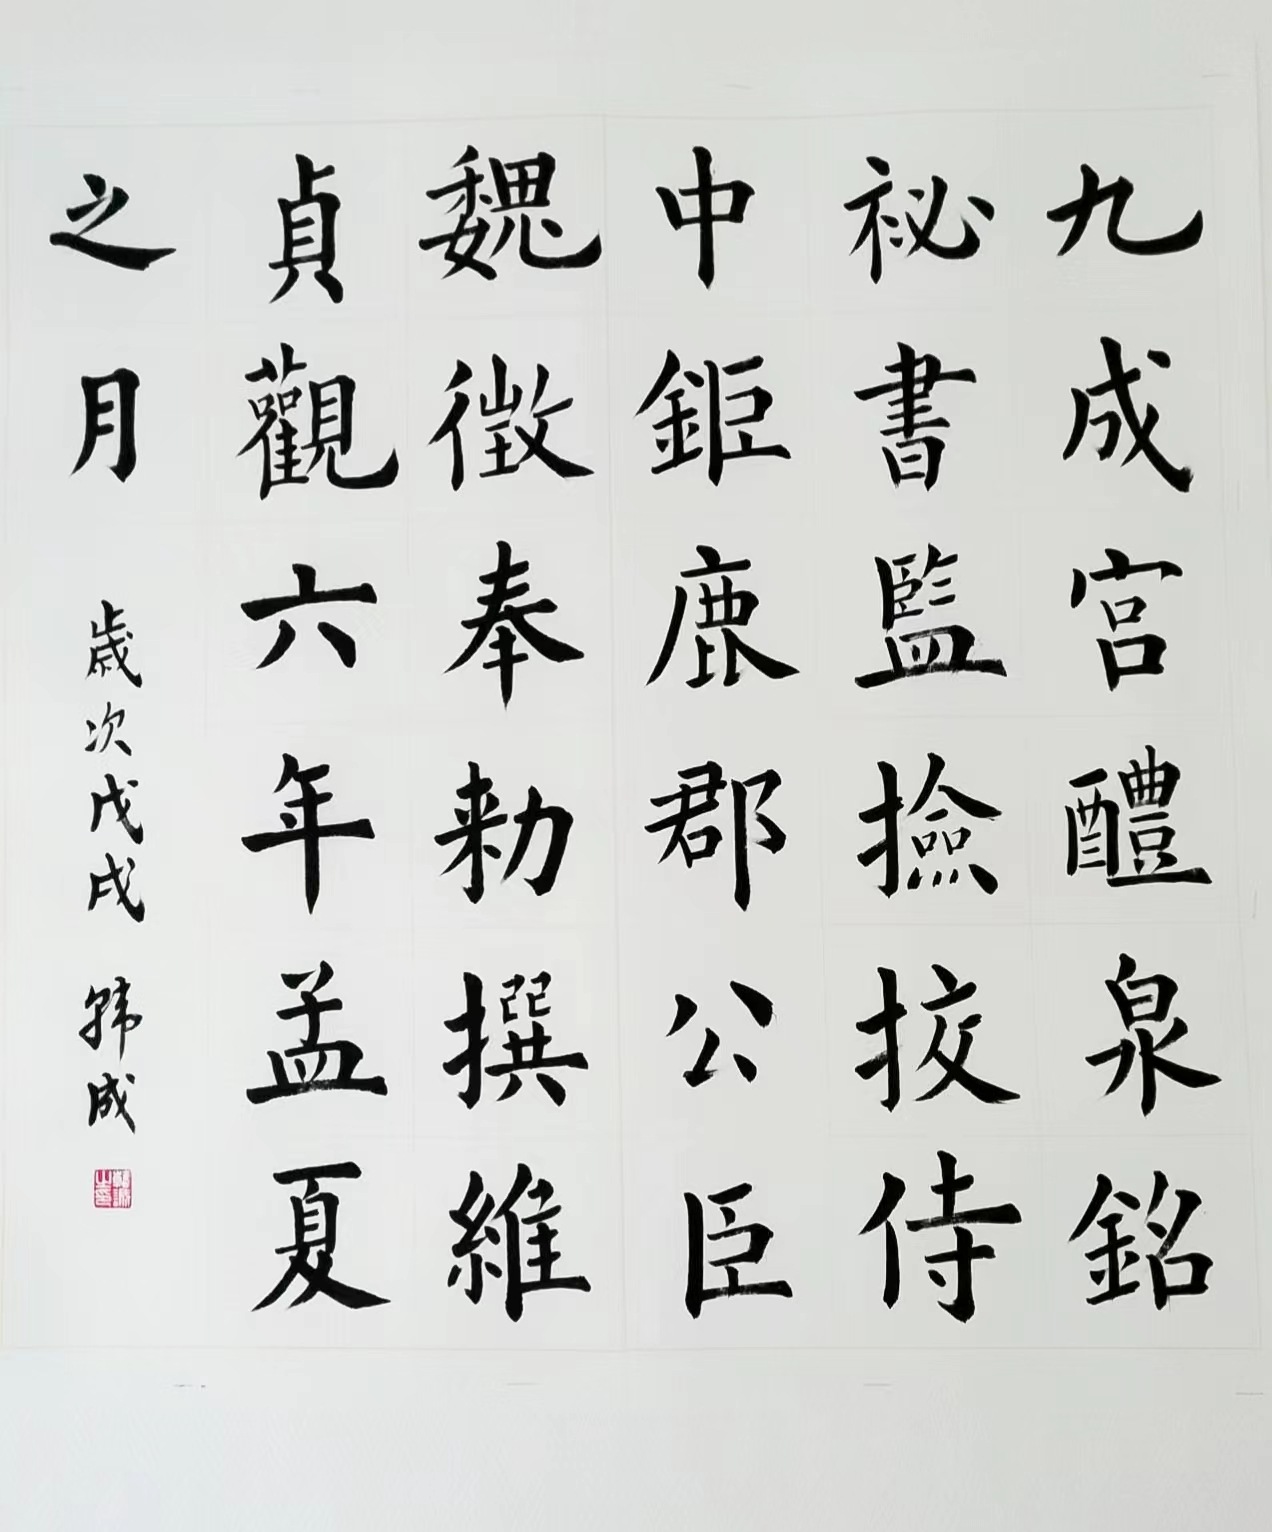 九成宫醴泉銘
祕書監撿挍侍
中鉅鹿郡公臣
魏徵奉勑撰維
貞觀六年孟夏
之月
歳次戊戌 韩成